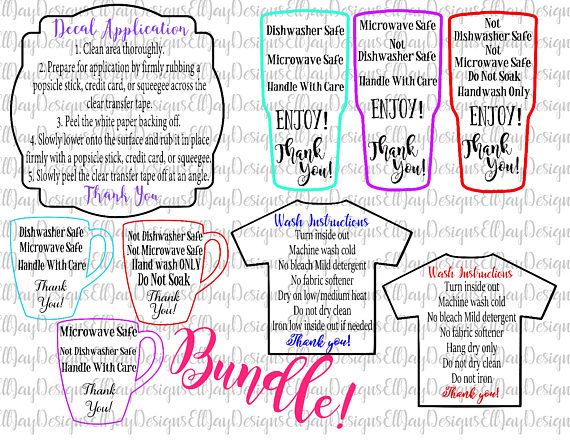 Decal Application
1. Clean area thoroughly.
2. Prepare for application by firmly rubbing a
popsicle stick, credit card, or squeegee across the
clear transfer tape.
3. Peel the white paper backing off.
4. Slowly lower onto the surface and rub it in place
firmly with a popsicle stick, credit card, or squeegee.
5. Slowly peel the clear transfer tape off at an angle.
Thank You
Dishwasher Safe
Microwave Safe
Handle With Care
ENJOY!
Thank
You!
Microwave Safe
Not
Dishwasher Safe
Handle With Care
ENJOY!
Thank
You!
Not
Dishwasher Safe
Not
Microwave Safe
Do Not Soak
Handwash Only
ENJOY!
Thank
You!
Dishwasher Safe
Microwave Safe
Handle With Care
Thank
You!
Not Dishwasher Safe
Not Microwave Safe
Hand wash ONLY
Do Not Soak
Thank
You!
Microwave Safe
Not Dishwasher Safe
Handle With Care
Thank
You!
Wash Instructions
Turn inside out
Machine wash cold
No bleach Mild detergent
No fabric softener
Dry on low/medium heat
Do not dry clean
Iron low inside out if needed
Thank you!
Wash Instructions
Turn inside out
Machine wash cold
No bleach Mild detergent
No fabric softener
Hang dry only
Do not dry clean
Do not iron
Thank you!
Bundle!
EllJayDesigns